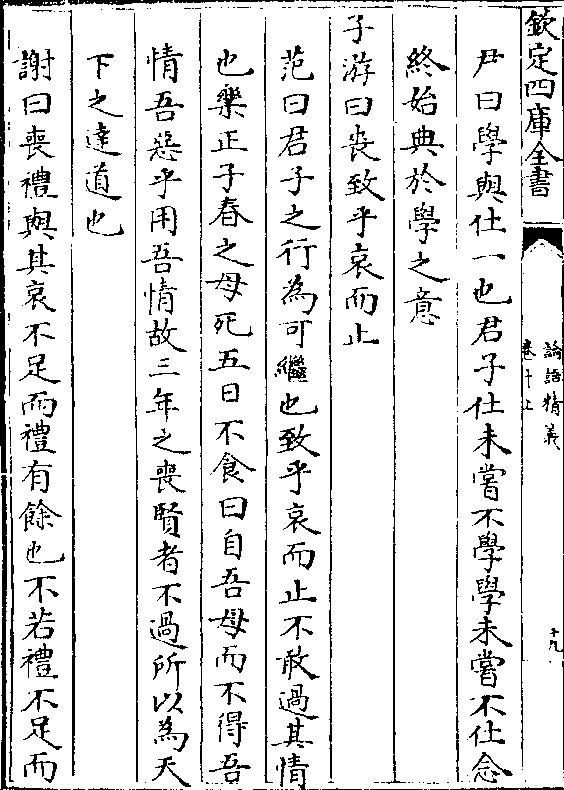 欽定四庫全書
論語精義
卷十上
十九
尹曰學與仕一也君子仕未嘗不學學未嘗不仕念
終始典於學之意
子游曰喪致乎哀而止
范曰君子之行為可繼也致乎哀而止不敢過其情
也樂正子春之母死五日不食曰自吾母而不得吾
情吾惡乎用吾情故三年之喪賢者不過所以為天
下之達道也
謝曰喪禮與其哀不足而禮有餘也不若禮不足而